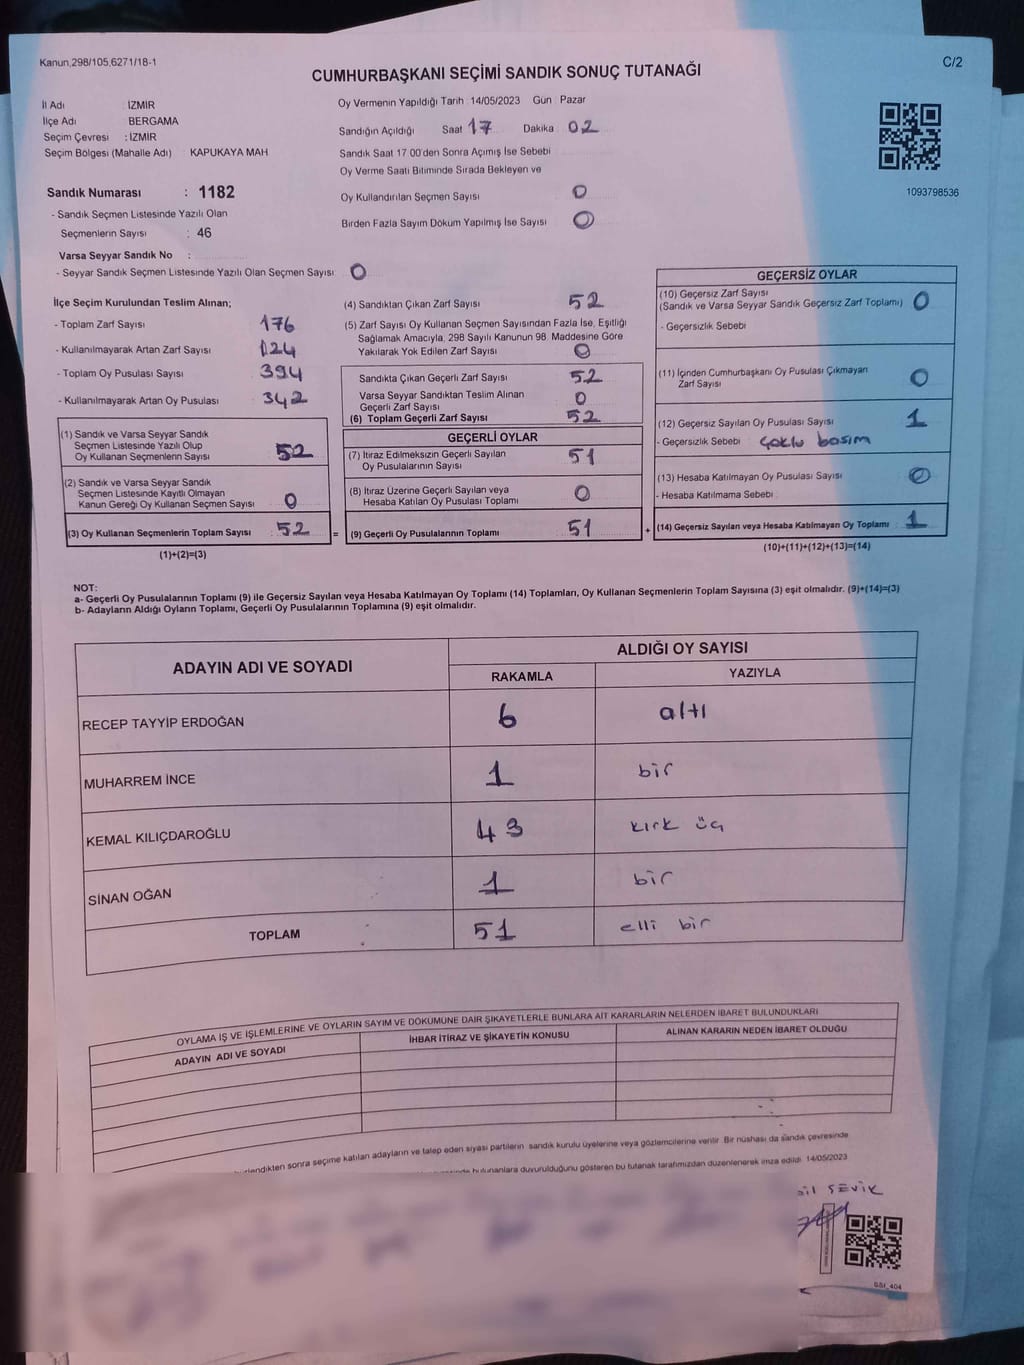 Kanun,298/105,6271/18-1
C/2
CUMHURBAŞKANI SEÇİMİ SANDIK SONUÇ TUTANAĞI
İl Adı : İZMİR
İlçe Adı : BERGAMA
Seçim Çevresi : İZMİR
Seçim Bölgesi (Mahalle Adı) KAPUKAYA MAH
Sandık Numarası : 1182
- Sandık Seçmen Listesinde Yazılı Olan
Seçmenlerin Sayısı : 46
Varsa Seyyar Sandık No :
- Seyyar Sandık Seçmen Listesinde Yazılı Olan Seçmen Sayısı: 0
Oy Vermenin Yapıldığı Tarih : 14/05/2023 Gün : Pazar
Sandığın Açıldığı Saat 17 Dakika 02
Sandık Saat 17 00'den Sonra Açımış İse Sebebi
Oy Verme Saati Bitiminde Sırada Bekleyen ve
Oy Kullandırılan Seçmen Sayısı 0
Birden Fazla Sayım Döküm Yapılmış İse Sayısı 0
1093798536
İlçe Seçim Kurulundan Teslim Alınan;
- Toplam Zarf Sayısı 176
- Kullanılmayarak Artan Zarf Sayısı 124
- Toplam Oy Pusulası Sayısı 394
- Kullanılmayarak Artan Oy Pusulası 342
(1) Sandık ve Varsa Seyyar Sandık
Seçmen Listesinde Yazılı Olup
Oy Kullanan Seçmenlerin Sayısı 52
(2) Sandık ve Varsa Seyyar Sandık
Seçmen Listesinde Kayıtlı Olmayan
Kanun Gereği Oy Kullanan Seçmen Sayısı 0
(3) Oy Kullanan Seçmenlerin Toplam Sayısı 52
(1)+(2)=(3)
(4) Sandıktan Çıkan Zarf Sayısı 52
(5) Zarf Sayısı Oy Kullanan Seçmen Sayısından Fazla İse, Eşitliği
Sağlamak Amacıyla, 298 Sayılı Kanunun 98. Maddesine Göre
Yakılarak Yok Edilen Zarf Sayısı 0
Sandıkta Çıkan Geçerli Zarf Sayısı 52
Varsa Seyyar Sandıktan Teslim Alınan
Geçerli Zarf Sayısı 0
(6) Toplam Geçerli Zarf Sayısı 52
GEÇERLİ OYLAR
(7) İtiraz Edilmeksizin Geçerli Sayılan
Oy Pusulalarının Sayısı 51
(8) İtiraz Üzerine Geçerli Sayılan veya
Hesaba Katılan Oy Pusulası Toplamı 0
= (9) Geçerli Oy Pusulalarının Toplamı 51 +
GEÇERSİZ OYLAR
(10) Geçersiz Zarf Sayısı
(Sandık ve Varsa Seyyar Sandık Geçersiz Zarf Toplamı) 0
- Geçersizlik Sebebi
(11) İçinden Cumhurbaşkanı Oy Pusulası Çıkmayan
Zarf Sayısı 0
(12) Geçersiz Sayılan Oy Pusulası Sayısı 1
- Geçersizlik Sebebi çoklu basım
(13) Hesaba Katılmayan Oy Pusulası Sayısı 0
- Hesaba Katılmama Sebebi
(14) Geçersiz Sayılan veya Hesaba Katılmayan Oy Toplamı 1
(10)+(11)+(12)+(13)=(14)
NOT:
a- Geçerli Oy Pusulalarının Toplamı (9) ile Geçersiz Sayılan veya Hesaba Katılmayan Oy Toplamı (14) Toplamları, Oy Kullanan Seçmenlerin Toplam Sayısına (3) eşit olmalıdır. (9)+(14)=(3)
b- Adayların Aldığı Oyların Toplamı, Geçerli Oy Pusulalarının Toplamına (9) eşit olmalıdır.
ADAYIN ADI VE SOYADI ALDIĞI OY SAYISI
RAKAMLA YAZIYLA
RECEP TAYYİP ERDOĞAN 6 altı
MUHARREM İNCE 1 bir
KEMAL KILIÇDAROĞLU 43 kırk üç
SİNAN OĞAN 1 bir
TOPLAM 51 elli bir
OYLAMA İŞ VE İŞLEMLERİNE VE OYLARIN SAYIM VE DÖKÜMÜNE DAİR ŞİKAYETLERLE BUNLARA AİT KARARLARIN NELERDEN İBARET BULUNDUKLARI
ADAYIN ADI VE SOYADI İHBAR İTİRAZ VE ŞİKAYETİN KONUSU ALINAN KARARIN NEDEN İBARET OLDUĞU
sonra seçime katılan adayların ve talep eden siyasi partilerin sandık kurulu üyelerine veya gözlemcilerine verilir. Bir nüshası da sandık çevresinde
bulunanlara duyurulduğunu gösteren bu tutanak tarafımızdan düzenlenerek imza edildi. 14/05/2023
SEVİK
GSI_404